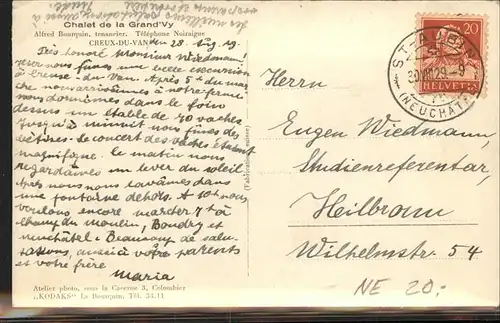 Les meilleures salutations aussi à
Chalet de la Grand'Vy
Alfred Bourquin, tenancier. Téléphone Noiraigue
CREUX-DU-VAN, le 28 Aug. 29.
Très honoré Monsieur Wiedemann!
Hier nous fîmes une belle excursion
à Creux-du-Van. Après
que nous arrivâmes à notre ferme
nous dormîmes dans le foin
dessus une étable de 70 vaches.
Jusqu'à minuit nous fîmes des
bêtises. Le concert des vaches était
magnifique. Le matin nous
regardâmes un lever du soleil.
Après nous nous lavâmes dans
une fontaine dehors. A 10h nous
voulons encore marcher à
Champ du Moulin, Boudry et
Neuchâtel. Beaucoup de salu-
tations, aussi à votre parents
et votre frère
Maria
Atelier photo, sous la Caserne 3, Colombier
„KODAKS" La Bourquin, Tél. 34.11
ST-AUBIN
29-9
(NEUCHATEL)
20
HELVETIA
Herrn
Eugen Wiedmann,
Studienreferentar,
Heilbronn
Wilhelmstr. 54
NE 20.-